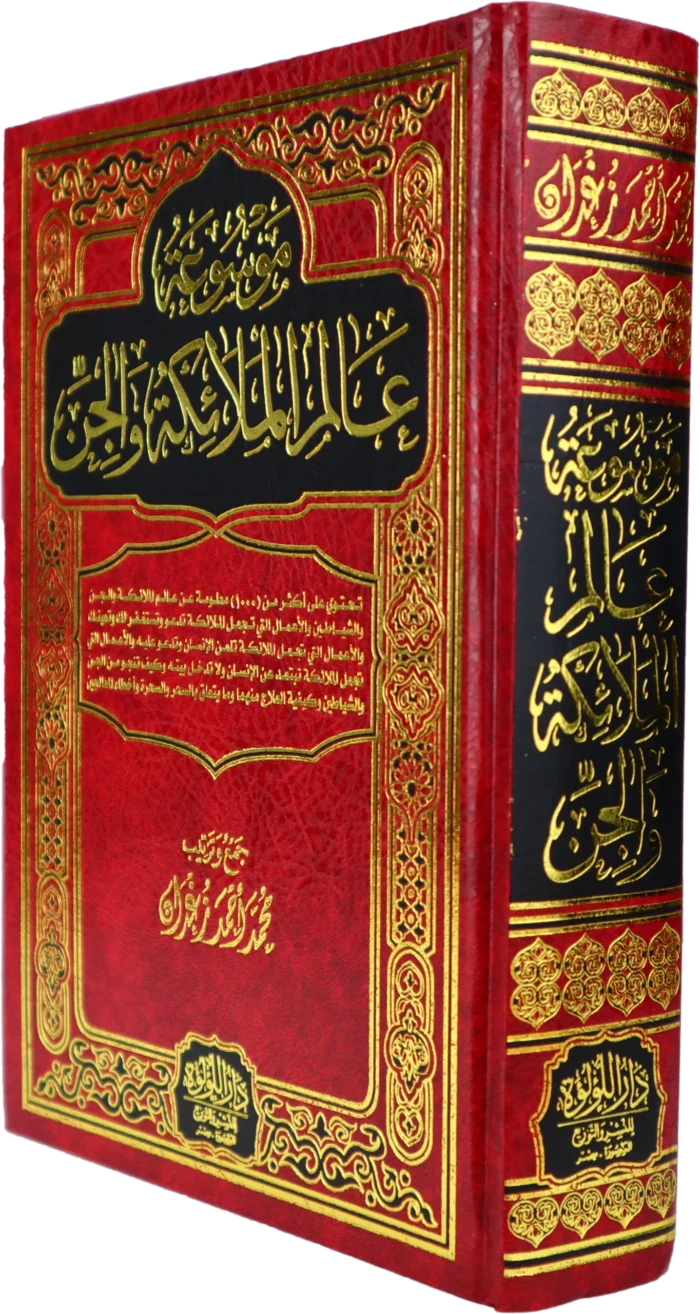 مَوْسُوعَةُ
عَالَمِ المَلَائِكَةِ وَالجِنِّ
تحتوي على أكثر من (١٠٠٠) معلومة عن عالم الملائكة والجن
والشياطين والأعمال التي تجعل الملائكة تدعو وتستغفر لك وتعينك
والأعمال التي تجعل الملائكة تلعن الإنسان وتدعو عليه والأعمال التي
تجعل الملائكة تبتعد عن الإنسان ولا تدخل بيته وكيف تنجو من الجن
والشياطين وكيفية العلاج منهما وما يتعلق بالسحر والسحرة وأخطاء المعالجين
جَمْعُ وَتَرْتِيبُ
مُحَمَّد أَحْمَد زُغْدَان
دَارُ اللُّؤْلُؤَة
للنشر والتوزيع
المنصورة - مصر
أَحْمَد زُغْدَان
مَوْسُوعَةُ
عَالَمِ
المَلَائِكَةِ
وَالجِنِّ
دَارُ اللُّؤْلُؤَة
للنشر والتوزيع
المنصورة - مصر